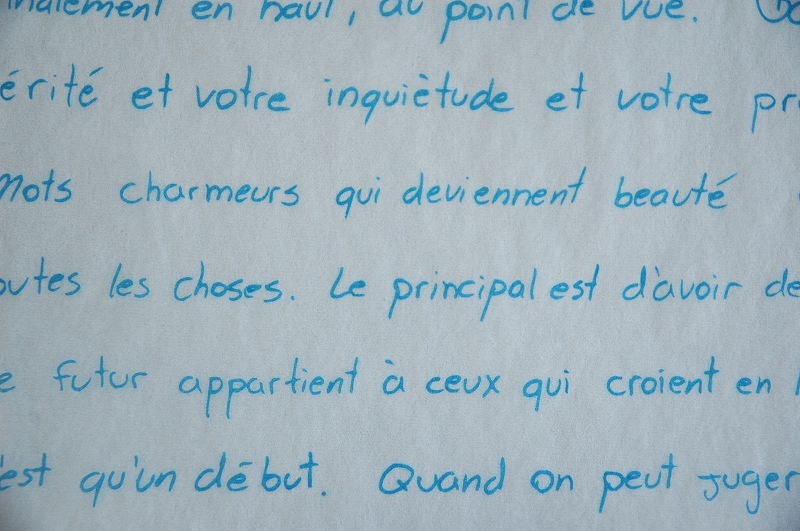 en haut, au point de vue.
érité et votre inquiètude et votre pr
Mots charmeurs qui deviennent beauté
outes les choses. Le principal est d'avoir de
e futur appartient à ceux qui croient en
'est qu'un début. Quand on peut juger